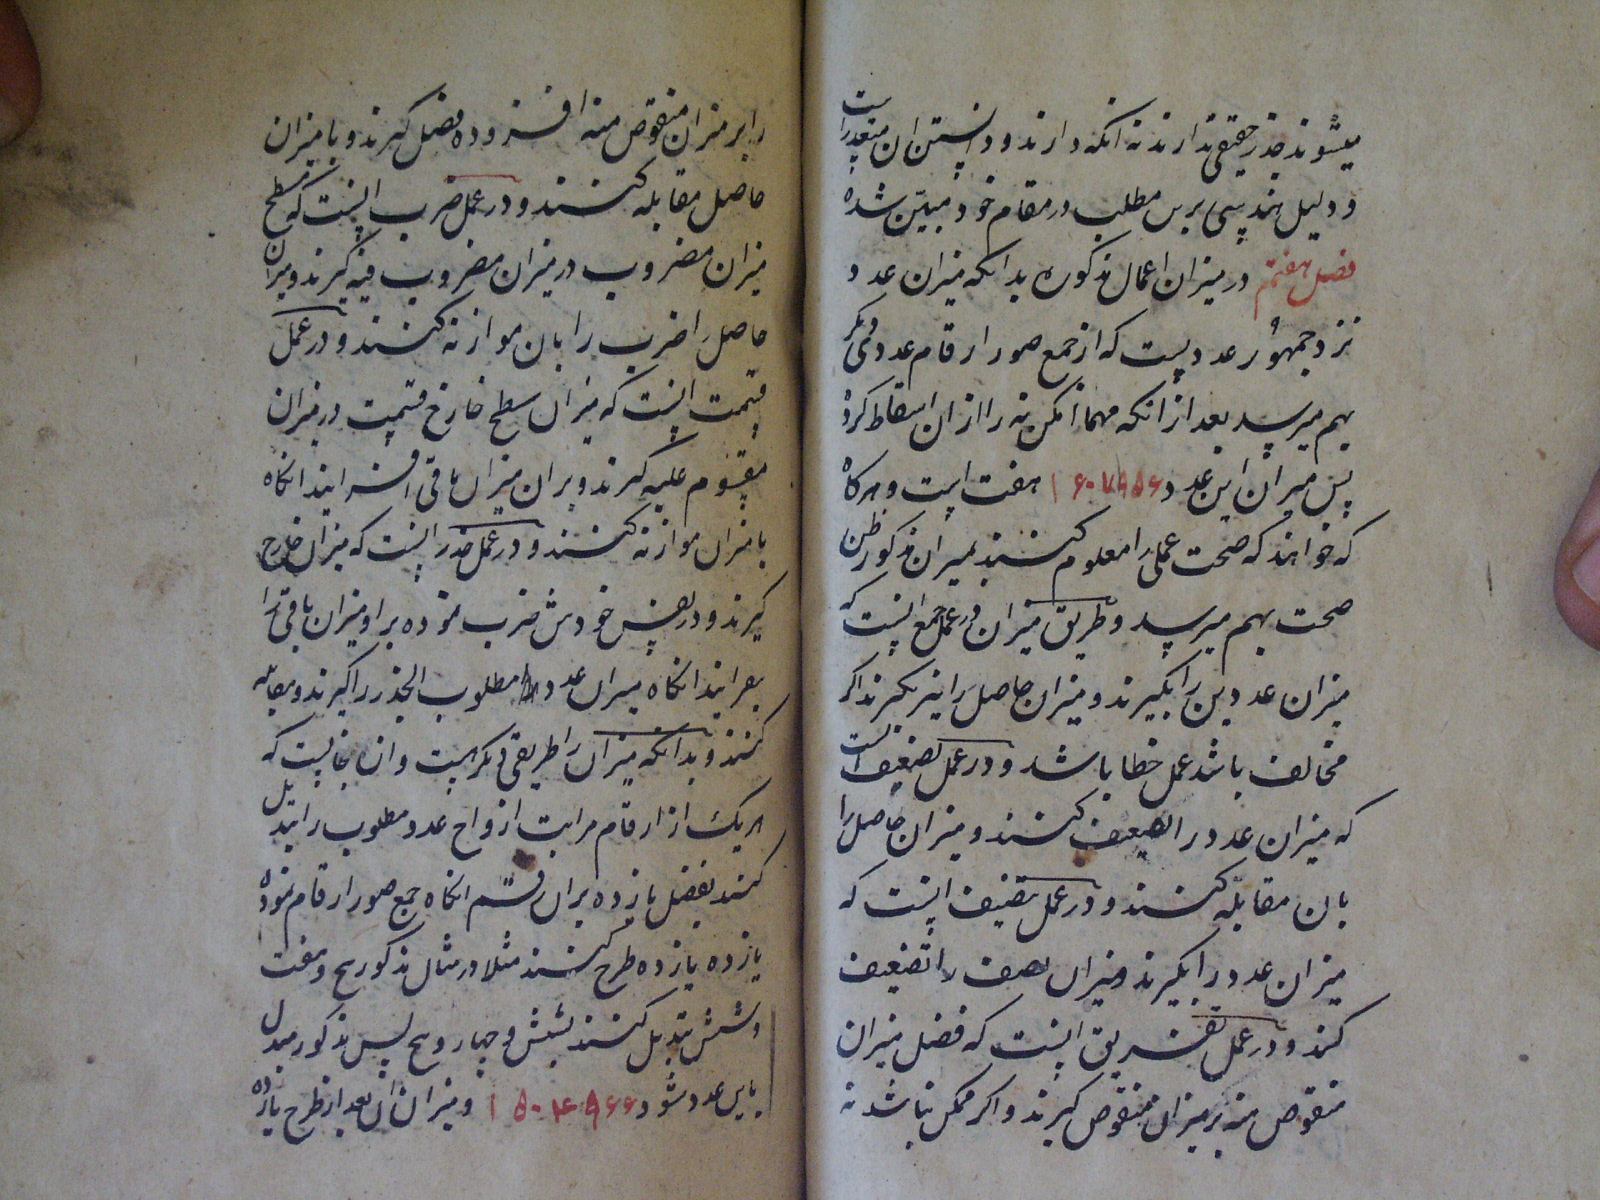 میشوند جذر حقیقی ندارند نه انکه دارند و دانستن ان متعذر است
و دلیل هندسی برین مطلب در مقام خود مبیّن شده
فصل هفتم در میزان اعمال مذکوره بدانکه میزان عدد
نزد جمهور عددیست که از جمع صور ارقام عدد دیگر
بهم میرسد بعد از انکه مهما امکن نه نه را ازان اسقاط کرده
پس میزان این عدد ۱۶۰۷۹۵۶ هفت است و هرکاه
که خواهند که صحت عملی را معلوم کنند بمیزان مذکور ظن
صحت بهم میرسد و طریق میزان در عمل جمع اینست که
میزان عددین را بگیرند و میزان حاصل را نیز بگیرند اگر
مخالف باشد عمل خطا باشد و در عمل تضعیف انست
که میزان عدد را تضعیف کنند و میزان حاصل را
بان مقابله کنند و در عمل تنصیف اینست که
میزان عدد را بگیرند و میزان نصف را تضعیف
کنند و در عمل تفریق اینست که فضل میزان
منقوص منه بر میزان منقوص گیرند و اگر ممکن نباشد نه
را بر میزان منقوص منه افزوده فضل گیرند و با میزان
حاصل مقابله کنند و در عمل ضرب اینست که مسطح
میزان مضروب در میزان مضروب فیه گیرند و میزان
حاصل ضرب را بان موازنه کنند و در عمل
قسمت اینست که میزان سطح خارج قسمت در میزان
مقسوم علیه گیرند و بران میزان باقی افزایند انکاه
با میزان موازنه کنند و در عمل جذر اینست که میزان خارج
گیرند و در نفس خودش ضرب نموده بر او میزان باقی را
بفزایند انکاه میزان عدد مطلوب الجذر را گیرند و مقابله
کنند و بدانکه میزان را طریقی دیگر هست و ان چنانست که
هر یک از ارقام مراتب ازواج عدد مطلوب را تبدیل
کنند بفضل یازده بران رقم انکاه جمع صور ارقام نموده
یازده یازده طرح کنند مثلا در مثال مذکور پنج و هفت
و شش تبدیل کنند بشش و چهار و پنج پس مذکور مبدل
باین عدد شود ۱۵۰۴۹۶۶ و میزان ان بعد از طرح یازده